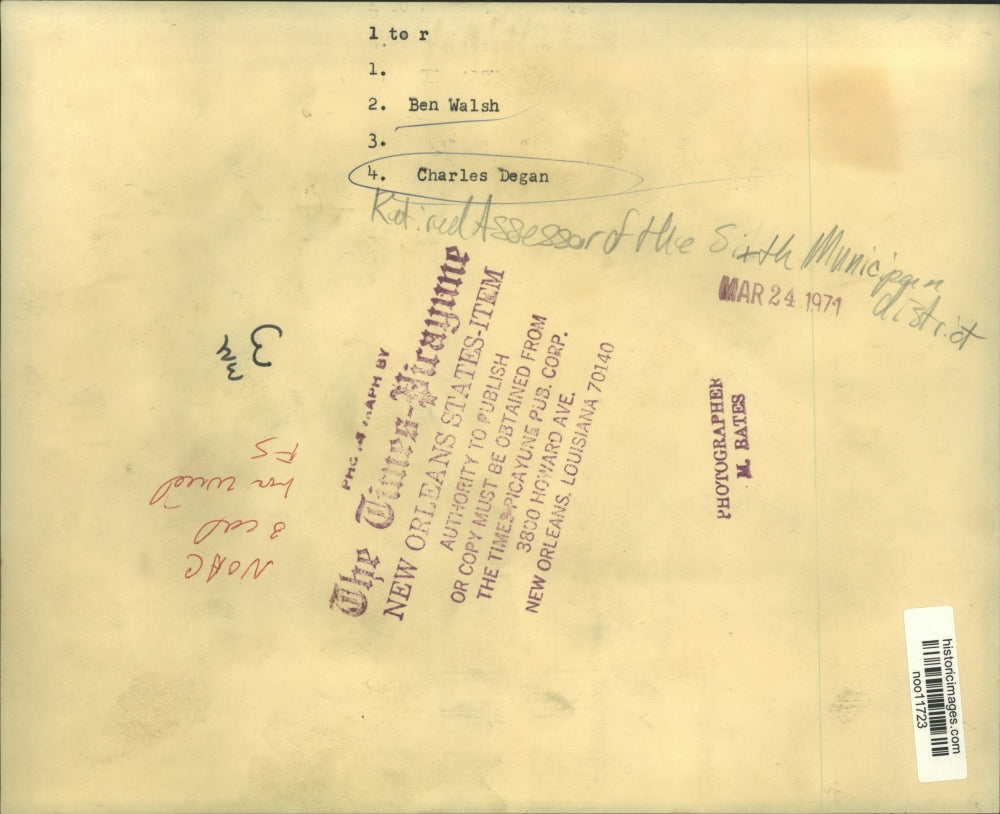 l to r
1.
2. Ben Walsh
3.
4. Charles Degan
Retired Assessor of the Sixth Municipal
district
MAR 24 1971
3 3/4
PHOTOGRAPH BY
The Times-Picayune
NEW ORLEANS STATES-ITEM
AUTHORITY TO PUBLISH
OR COPY MUST BE OBTAINED FROM
THE TIMES-PICAYUNE PUB. CORP.
3800 HOWARD AVE.
NEW ORLEANS, LOUISIANA 70140
PHOTOGRAPHER
M. BATES
NOAC
3 col
FS
historicimages.com
noo11723